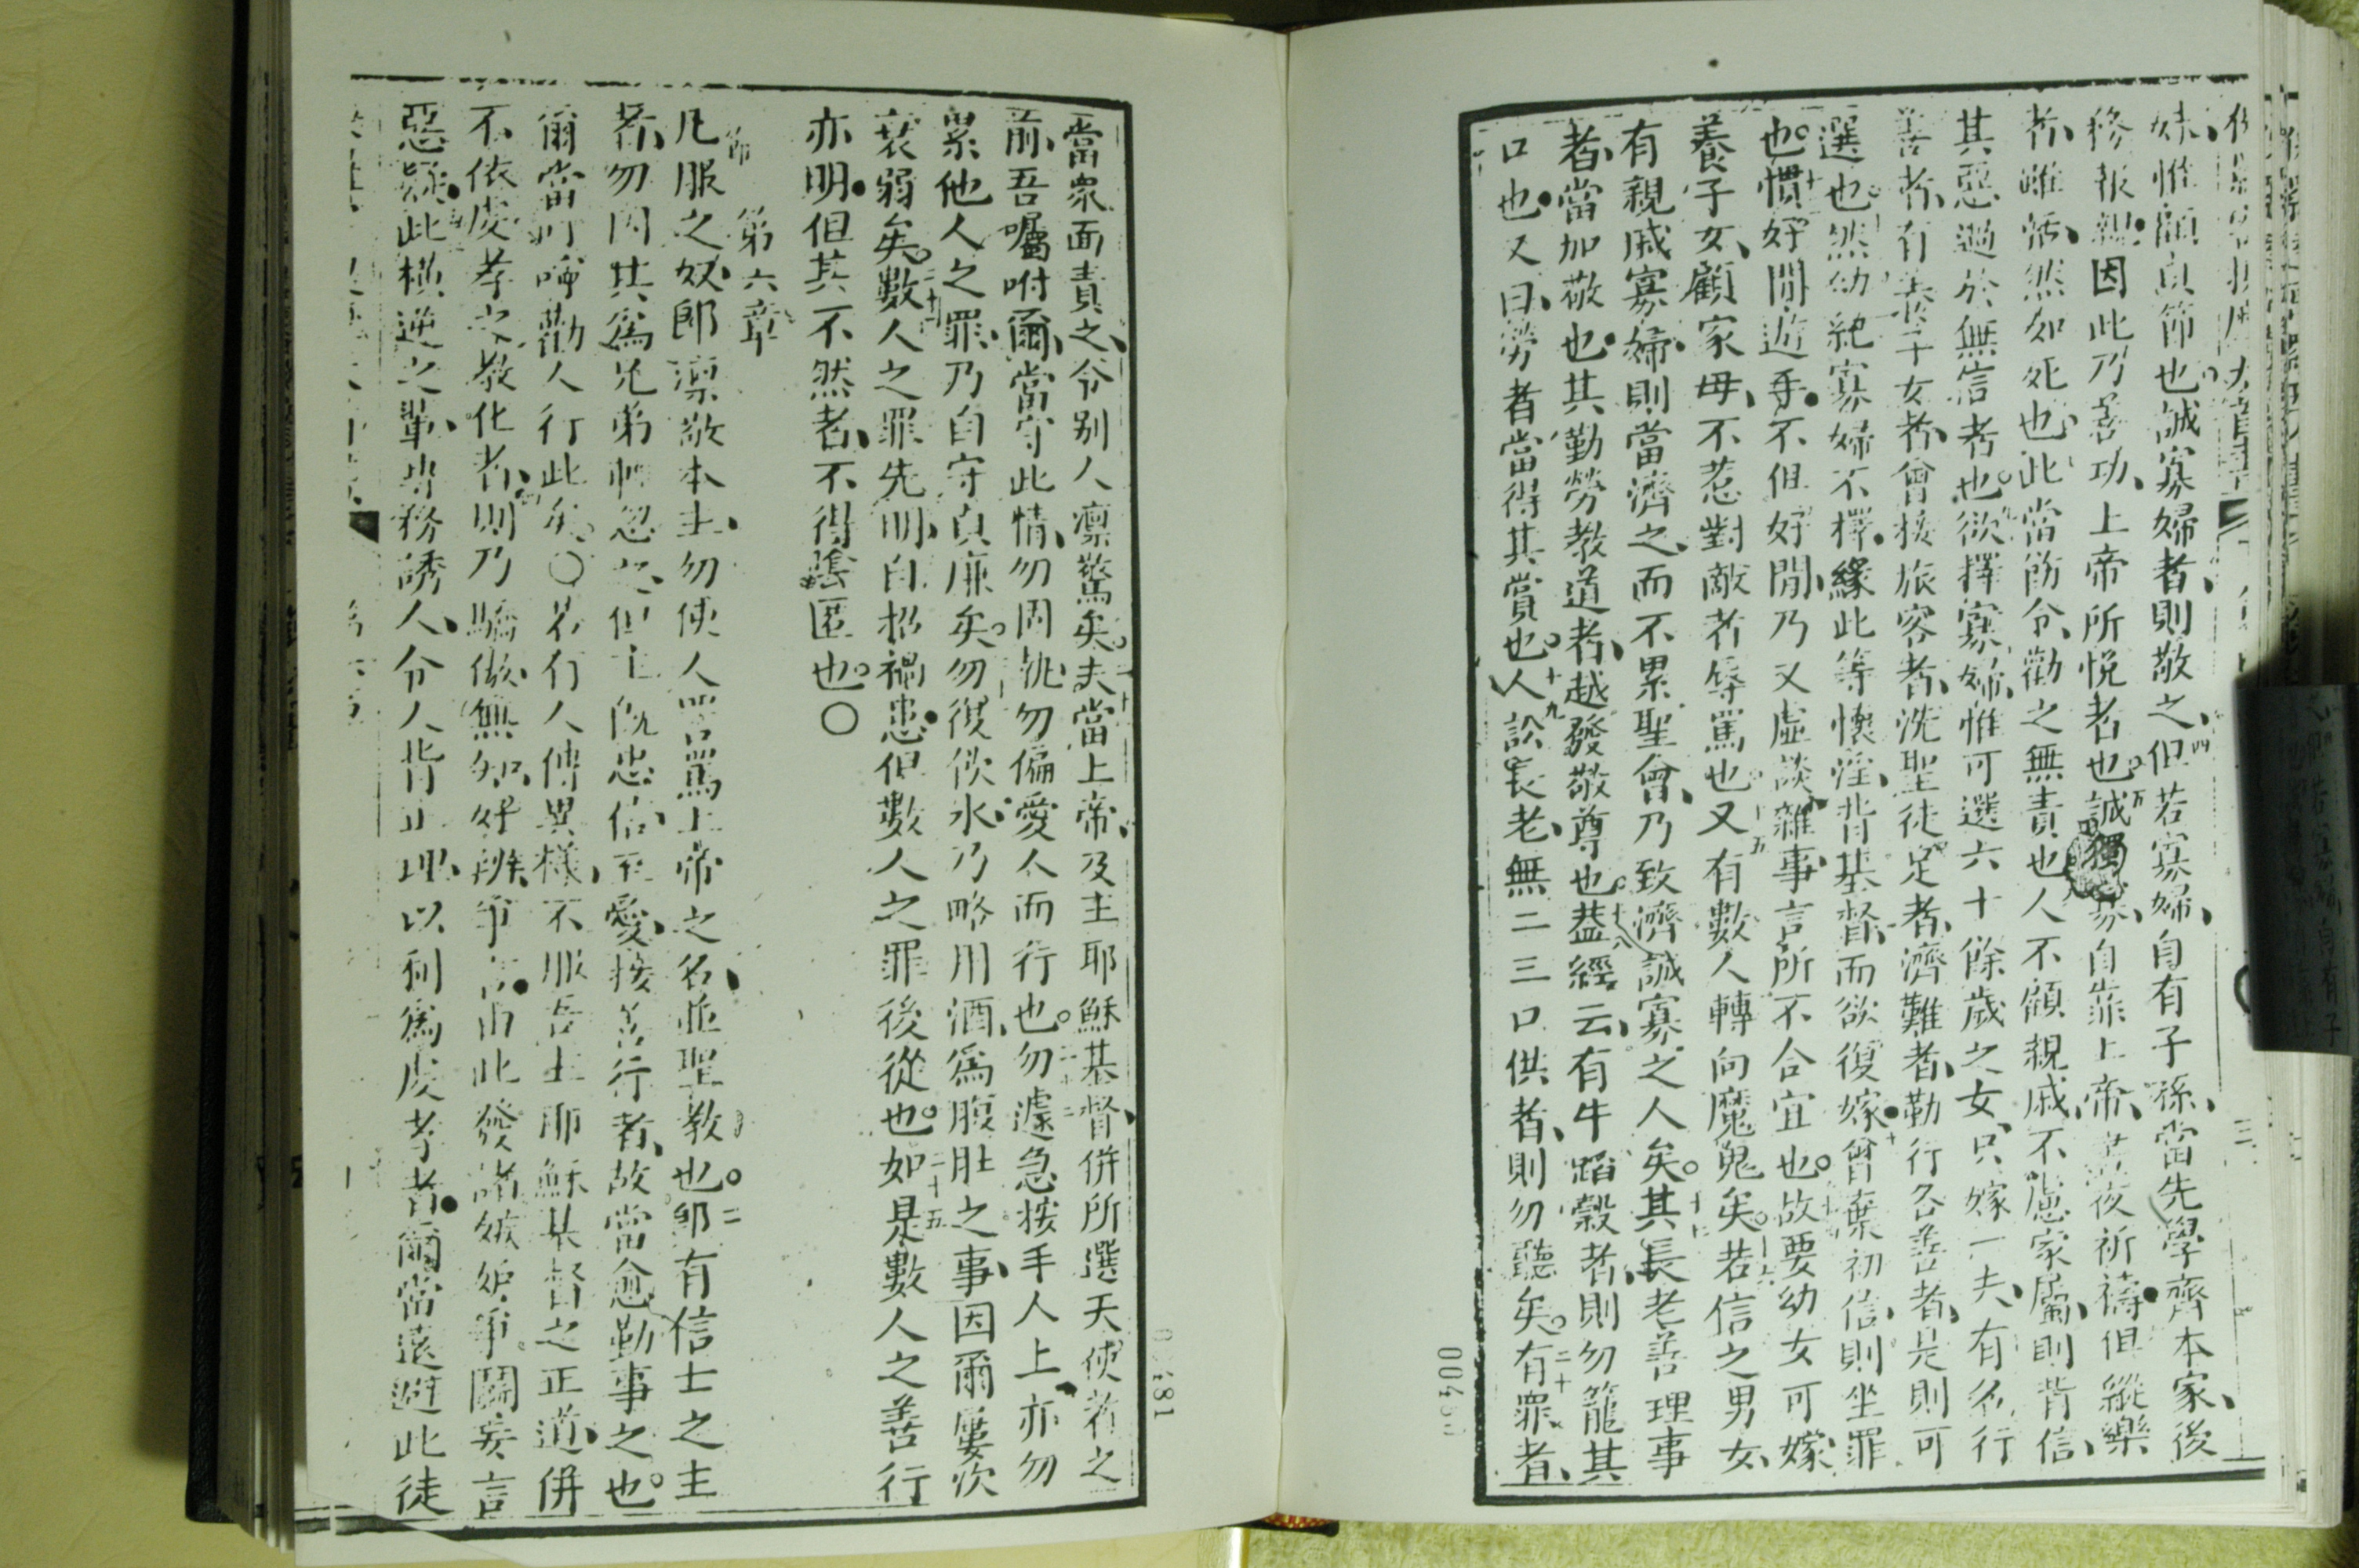 妹惟顧貞節也誠寡婦者則敬之四但若寡婦自有子孫當先學齊本家後
務報親因此乃善功上帝所悅者也五誠獨寡自靠上帝晝夜祈禱但縱樂
者雖活然如死也此當飭令勸之無責也人不顧親戚不慮家屬則背信
其惡過於無信者也欲擇寡婦惟可選六十餘歲之女只嫁一夫有名行
善者有養子女者曾接旅客者洗聖徒足者濟難者勤行各善者是則可
選也然幼絕寡婦不擇緣此等懷淫背基督而欲復嫁曾棄初信則坐罪
也慣好閒遊手不但好閒乃又虛談雜事言所不合宜也故要幼女可嫁
養子女顧家毋不惹對敵者辱罵也十五又有數人轉向魔鬼矣若信之男女
有親戚寡婦則當濟之而不累聖會乃致濟誠寡之人矣其長老善理事
者當加敬也其勤勞教道者越發敬尊也十八葢經云有牛蹈穀者則勿籠其
口也又曰勞者當得其賞也十九人訟長老無二三口供者則勿聽矣二十有罪者
00480
當衆面責之令別人凛驚矣二十一夫當上帝及主耶穌基督併所選天使者之
前吾囑咐爾當守此情勿周執勿偏愛人而行也二十二勿遽急按手人上亦勿
累他人之罪乃自守貞廉矣勿復飲水乃略用酒爲腹肚之事因爾屢次
衰弱矣數人之罪先明自招禍患但數人之罪後從也二十五如是數人之善行
亦明但其不然者不得隂匿也○
第六章
凡服之奴郎凛敬本主勿使人詈罵上帝之名並聖教也二郎有信士之主
者勿因其爲兄弟輕忽之但主既忠信至愛接善行者故當愈勤事之也
爾當叮嚀勸人行此矣○若有人傳異樣不服吾主耶穌基督之正道併
不依虔孝之教化者則乃驕傲無知好辨爭言由此發諸嫉妒爭鬪妄言
惡疑此橫逆之輩專務誘人令人背正理以利爲虔孝者爾當遠避此徒